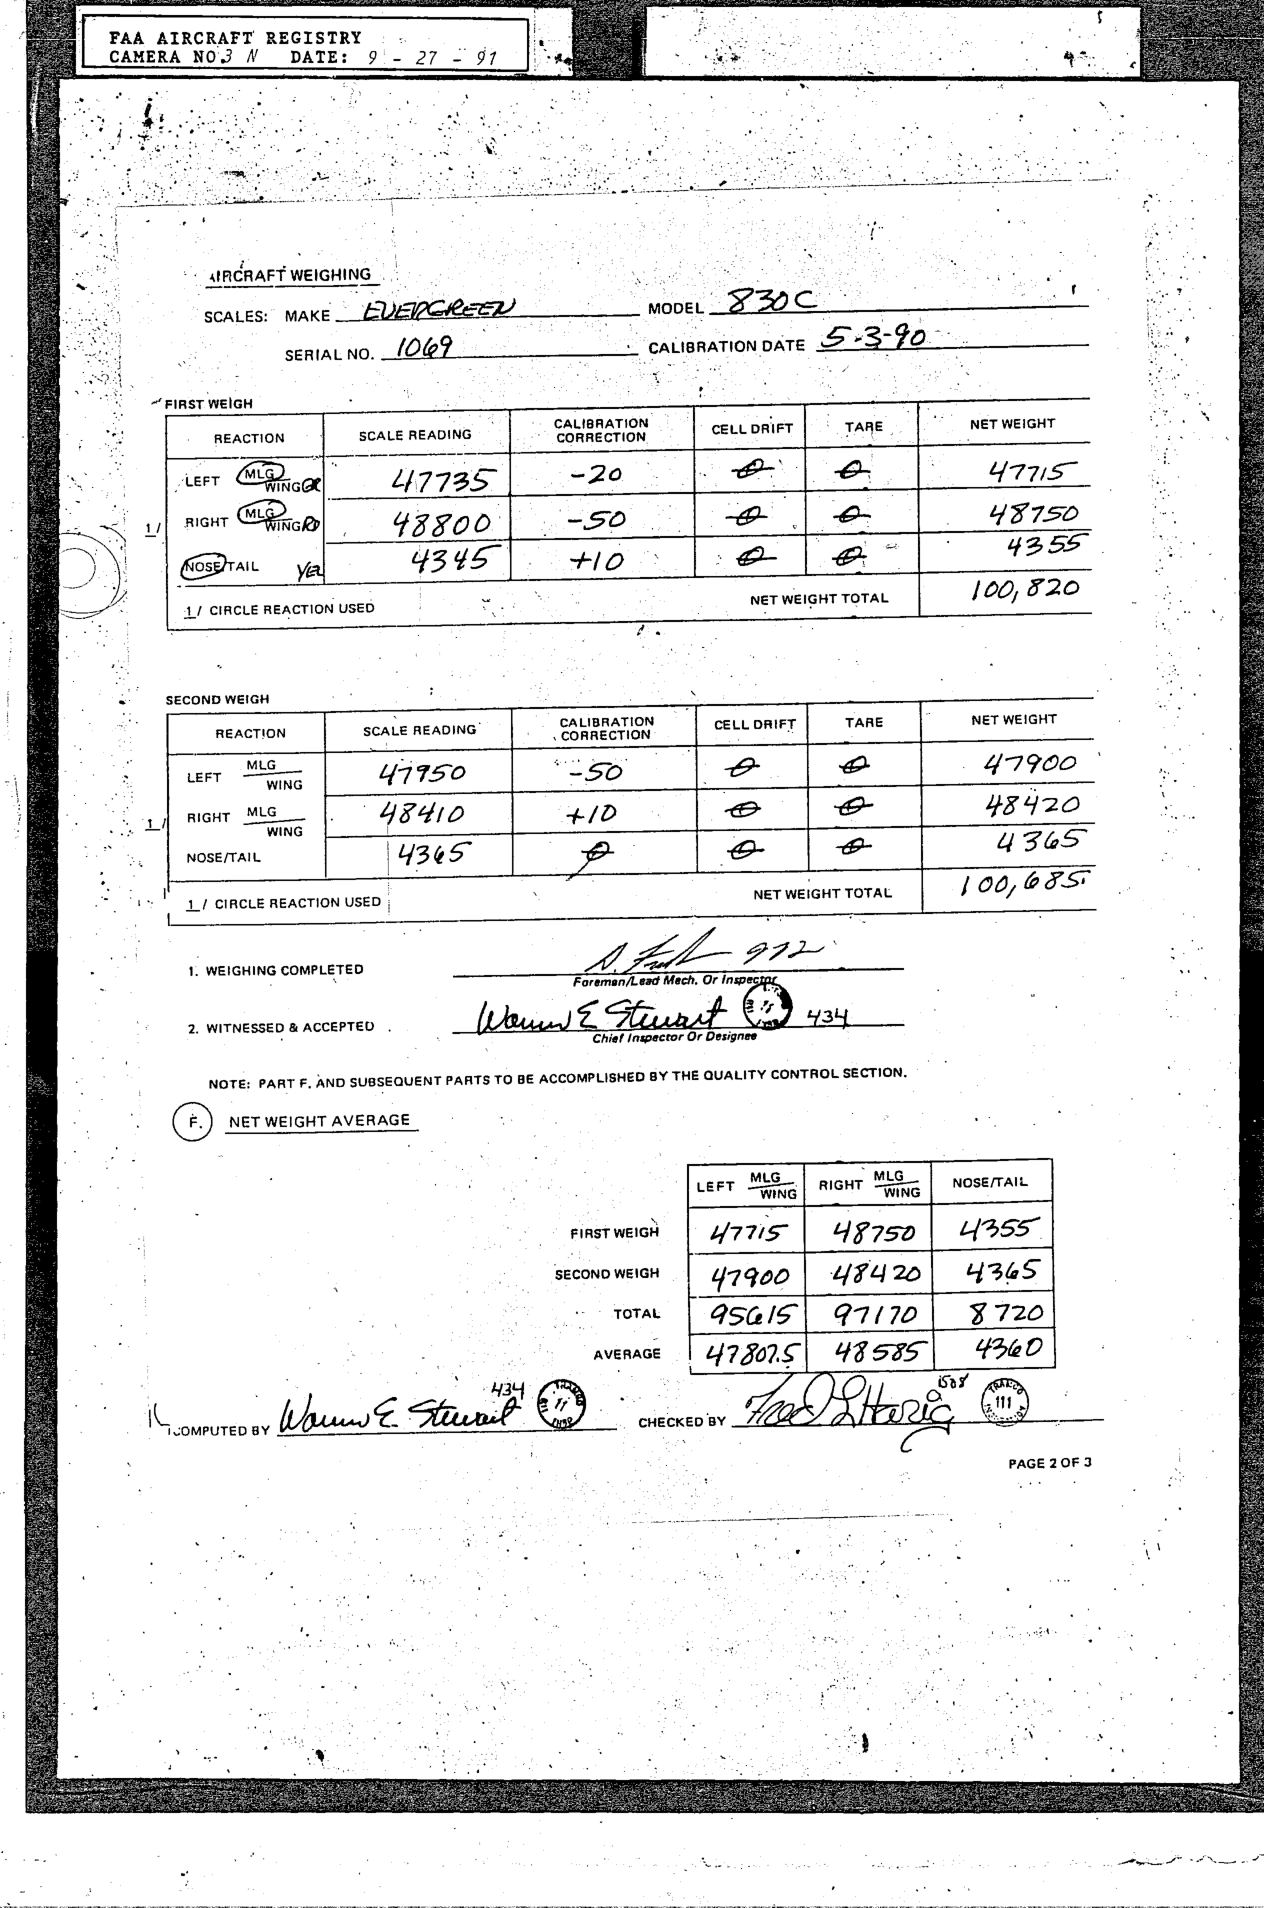 FAA AIRCRAFT REGISTRY
CAMERA NO. 3 N DATE: 9 - 27 - 91
AIRCRAFT WEIGHING
SCALES: MAKE EVERGREEN MODEL 830C
SERIAL NO. 1069 CALIBRATION DATE 5-3-90
FIRST WEIGH
REACTION SCALE READING CALIBRATION CORRECTION CELL DRIFT TARE NET WEIGHT
LEFT MLG WING 47735 -20 0 0 47715
1/ RIGHT MLG WING 48800 -50 0 0 48750
NOSE/TAIL 4345 +10 0 0 4355
1/ CIRCLE REACTION USED NET WEIGHT TOTAL 100,820
SECOND WEIGH
REACTION SCALE READING CALIBRATION CORRECTION CELL DRIFT TARE NET WEIGHT
LEFT MLG WING 47950 -50 0 0 47900
1/ RIGHT MLG WING 48410 +10 0 0 48420
NOSE/TAIL 4365 0 0 0 4365
1/ CIRCLE REACTION USED NET WEIGHT TOTAL 100,685
1. WEIGHING COMPLETED 972
Foreman/Lead Mech. Or Inspector
2. WITNESSED & ACCEPTED Warren E Stewart 434
Chief Inspector Or Designee
NOTE: PART F. AND SUBSEQUENT PARTS TO BE ACCOMPLISHED BY THE QUALITY CONTROL SECTION.
F. NET WEIGHT AVERAGE
LEFT MLG WING RIGHT MLG WING NOSE/TAIL
FIRST WEIGH 47715 48750 4355
SECOND WEIGH 47900 48420 4365
TOTAL 95615 97170 8720
AVERAGE 47807.5 48585 4360
COMPUTED BY Warren E. Stewart 434 CHECKED BY 1508 TRAMCO 111
PAGE 2 OF 3